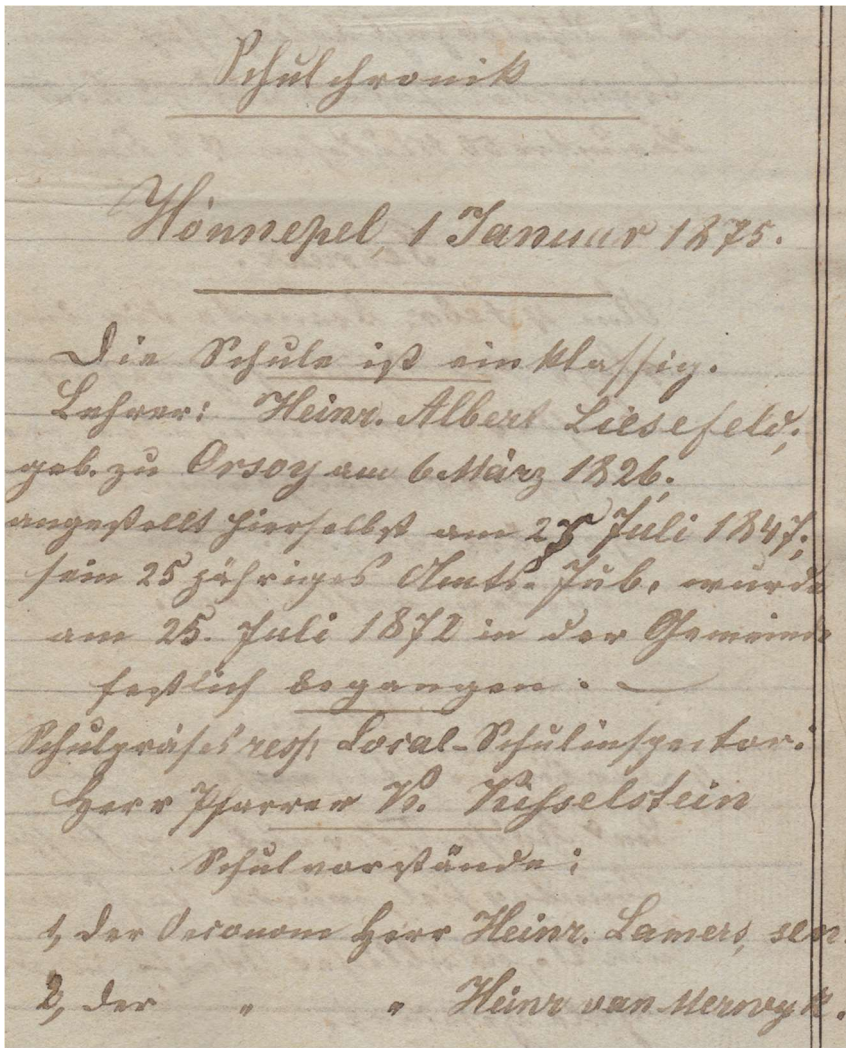 Schulchronik
Hönnepel, 1 Januar 1875.
Die Schule ist einklassig.
Lehrer: Heinr. Albert Liesefeld,
geb. zu Orsoy am 6 März 1826,
angestellt hierselbst am 25 Juli 1847;
sein 25 jähriges Amts-Jub. wurde
am 25. Juli 1872 in der Gemeinde
festlich begangen. —
Schulpräses resp. Local-Schulinspector:
Herr Pfarrer V. Visselstein
Schulvorstände:
1, der Oeconom Herr Heinr. Lamers, sen.
2, der " " Heinr van Merwyk.